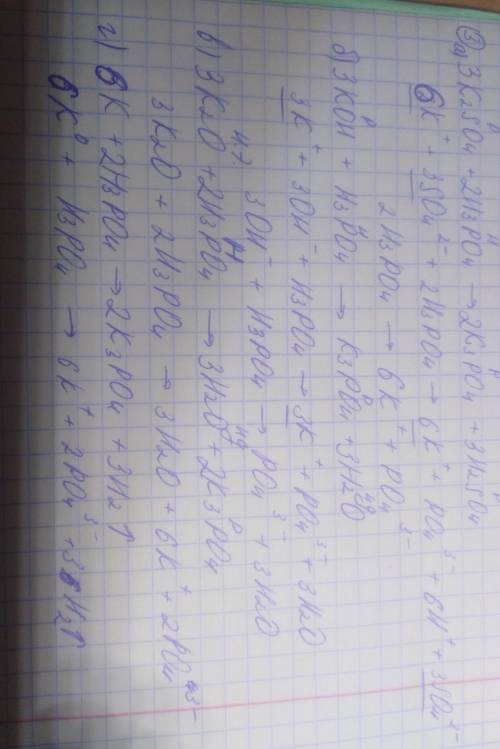 ③ а) 3K2SO4 + 2H3PO4 → 2K3PO4 + 3H2SO4
6K⁺ + 3SO4²⁻ + 2H3PO4 → 6K⁺ + PO4³⁻ + 6H⁺ + 3SO4²⁻
2H3PO4 → 6K⁺ + PO4³⁻
б) 3KOH + H3PO4 → K3PO4 + 3H2O
3K⁺ + 3OH⁻ + H3PO4 → 3K⁺ + PO4³⁻ + 3H2O
3OH⁻ + H3PO4 → PO4³⁻ + 3H2O
в) 3K2O + 2H3PO4 → 3H2O + 2K3PO4
3K2O + 2H3PO4 → 3H2O + 6K⁺ + 2PO4³⁻
г) 6K + 2H3PO4 → 2K3PO4 + 3H2↑
6K⁰ + H3PO4 → 6K⁺ + 2PO4³⁻ + 3H2↑